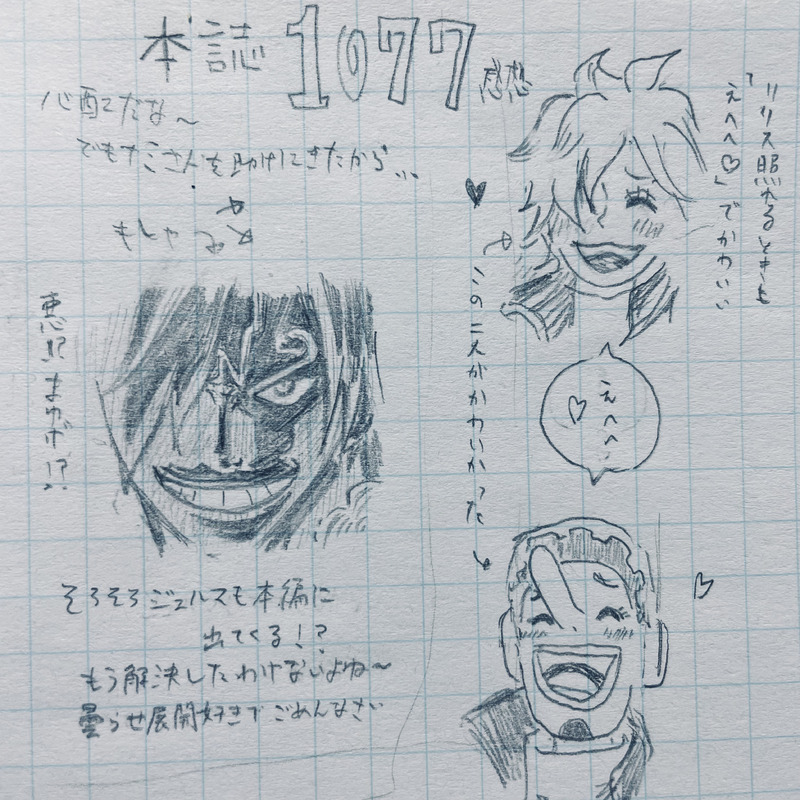 本誌 1077 感想
心配だな〜
でもナミさんを助けにきたから...
もしや
悪!? まゆげ!?
そろそろジェルマも本編に
出てくる!?
もう解決したわけないよね〜
曇らせ展開好きでごめんなさい
リリス照れるときも
「えへへ♡」でかわいい
この二人がかわいかった
えへへ♡